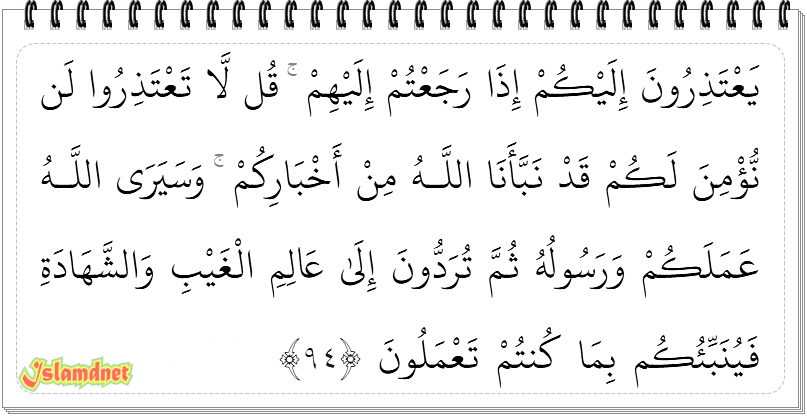 يَعْتَذِرُونَ إِلَيْكُمْ إِذَا رَجَعْتُمْ إِلَيْهِمْ ۚ قُل لَّا تَعْتَذِرُوا لَن
نُّؤْمِنَ لَكُمْ قَدْ نَبَّأَنَا اللَّـهُ مِنْ أَخْبَارِكُمْ ۚ وَسَيَرَى اللَّـهُ
عَمَلَكُمْ وَرَسُولُهُ ثُمَّ تُرَدُّونَ إِلَىٰ عَالِمِ الْغَيْبِ وَالشَّهَادَةِ
فَيُنَبِّئُكُم بِمَا كُنتُمْ تَعْمَلُونَ ﴿٩٤﴾
Islamdnet